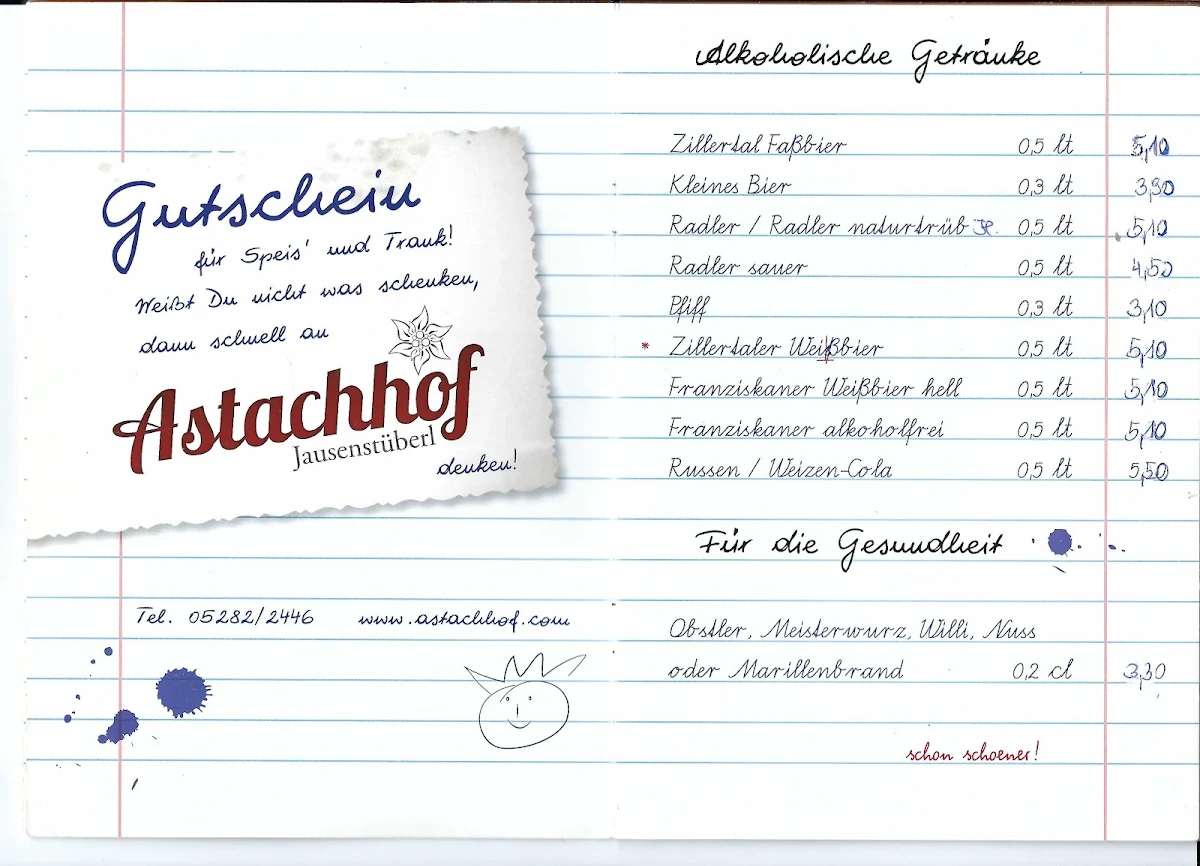 Gutschein
für Speis' und Trank!
Weißt Du nicht was schenken,
dann schnell an
Astachhof
Jausenstüberl
denken!
Tel. 05282/2446 www.astachhof.com
Alkoholische Getränke
Zillertal Faßbier 0,5 lt 5,10
Kleines Bier 0,3 lt 3,90
Radler / Radler naturtrüb 0,5 lt 5,10
Radler sauer 0,5 lt 4,50
Pfiff 0,3 lt 3,10
* Zillertaler Weißbier 0,5 lt 5,10
Franziskaner Weißbier hell 0,5 lt 5,10
Franziskaner alkoholfrei 0,5 lt 5,10
Russen / Weizen-Cola 0,5 lt 5,50
Für die Gesundheit
Obstler, Meisterwurz, Willi, Nuss
oder Marillenbrand 0,2 cl 3,30
schon schoener!